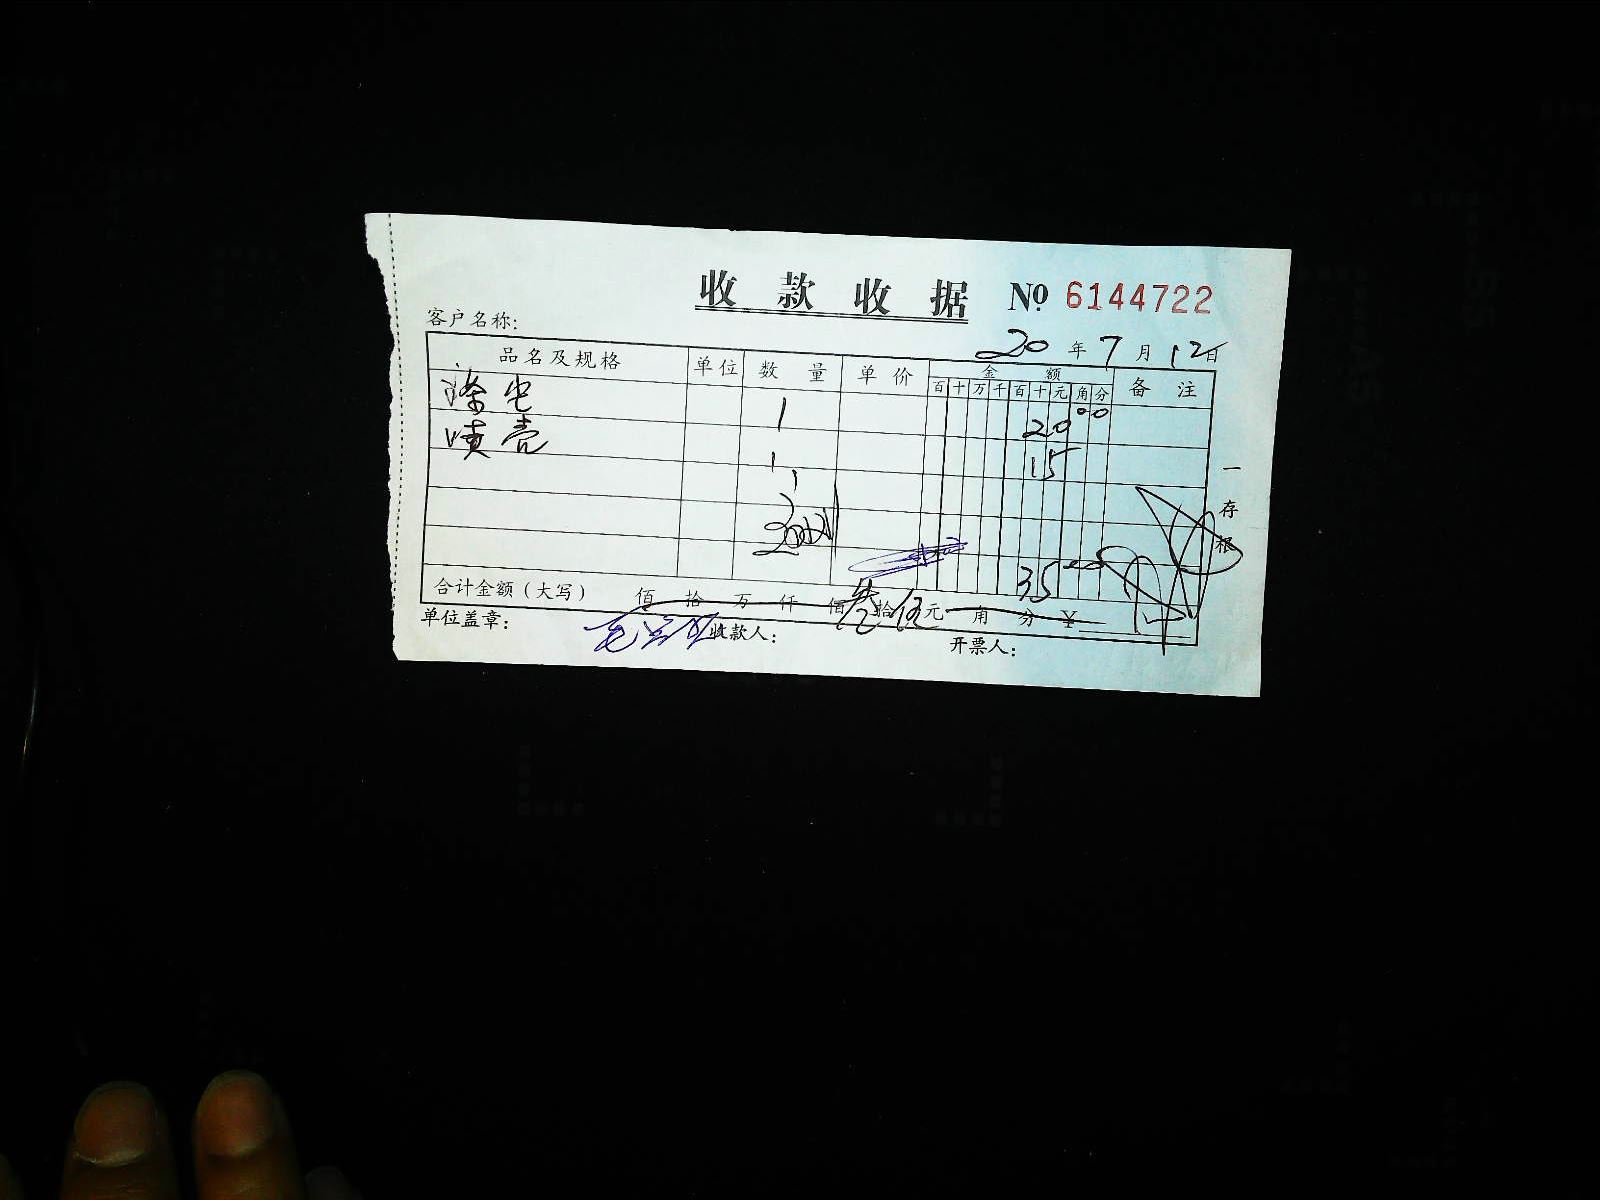 收款收据 № 6144722
客户名称:
20 年 7 月 12 日
品名及规格 单位 数量 单价 金额 备注
百 十 万 千 百 十 元 角 分
1 20 00
喷壳 1 15
35 00
合计金额(大写) 佰 拾 万 仟 佰 叁 拾 伍 元 角 分 ¥
单位盖章: 收款人: 开票人:
一存根